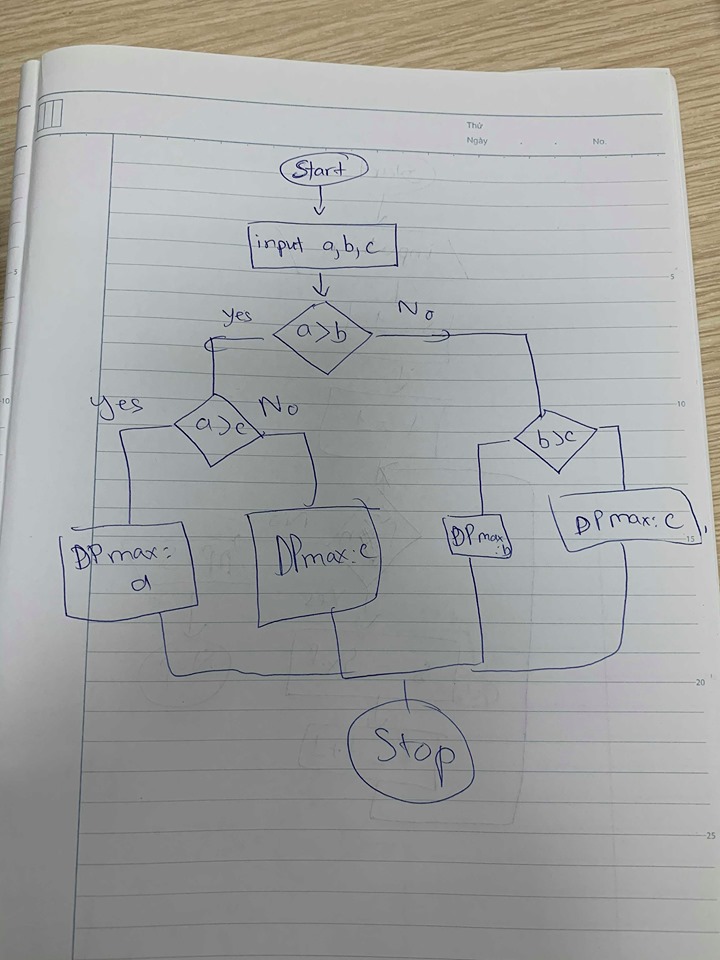 Thứ
Ngày . . No.
Start
input a,b,c
5
Yes
a>b
No
10
10
Yes
a>c
No
b>c
DPmax:
a
DPmax:c
DPmax
:b
DPmax:c
15
20
Stop
25
5